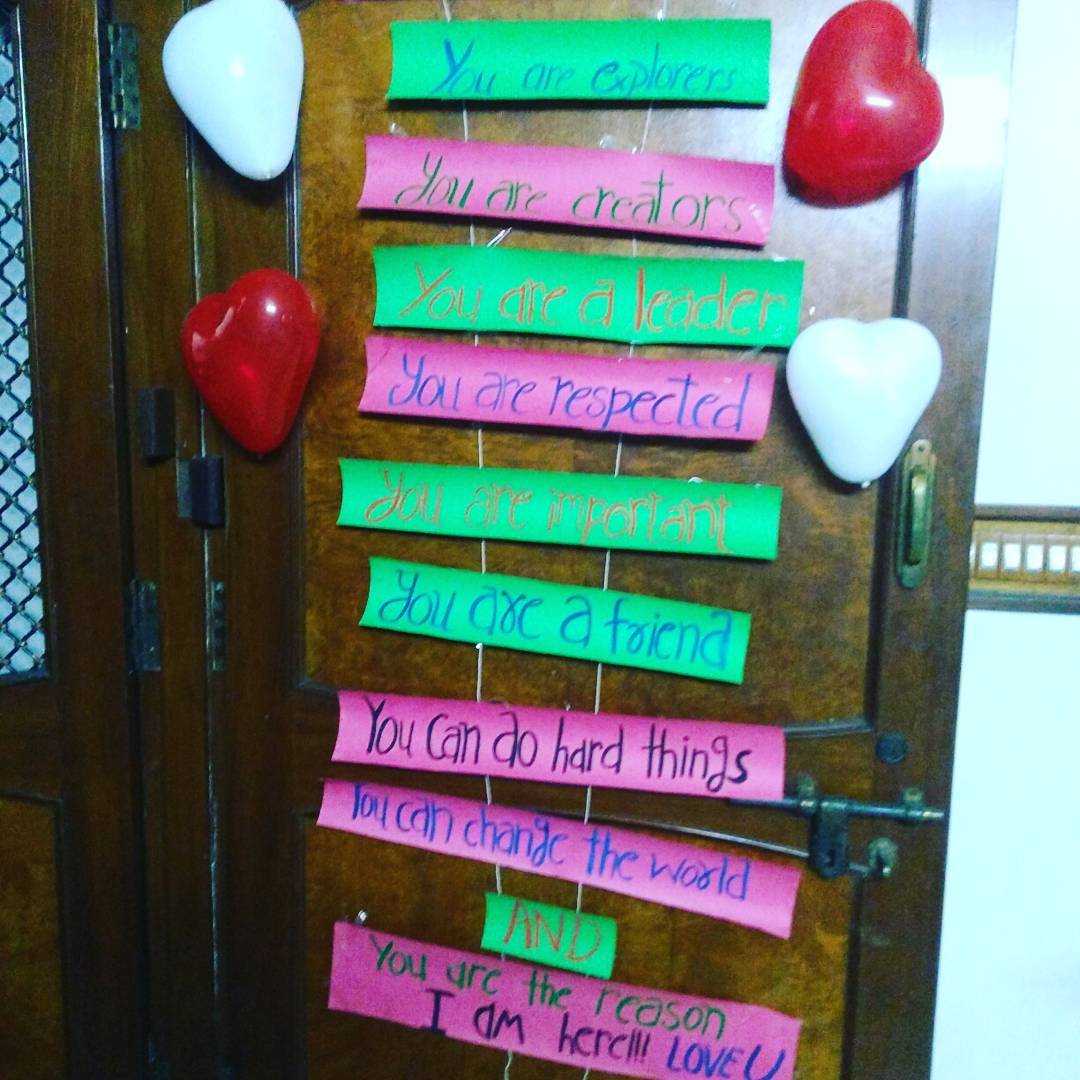 You are explorers
You are creators
You are a leader
You are respected
You are important
You are a friend
You can do hard things
You can change the world
AND
You are the reason
I am here!!! LOVE U